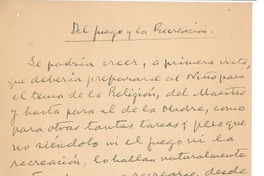 Del juego y la Recreación.
Se podría creer, a primera vista,
que debería prepararse al Niño para
el tema de la Religión, del Maestro
y hasta para el de la Madre, como
para otras tantas tareas; pero que
no siéndolo ni el juego ni la
recreación, lo hallan naturalmente
recrearse, desde